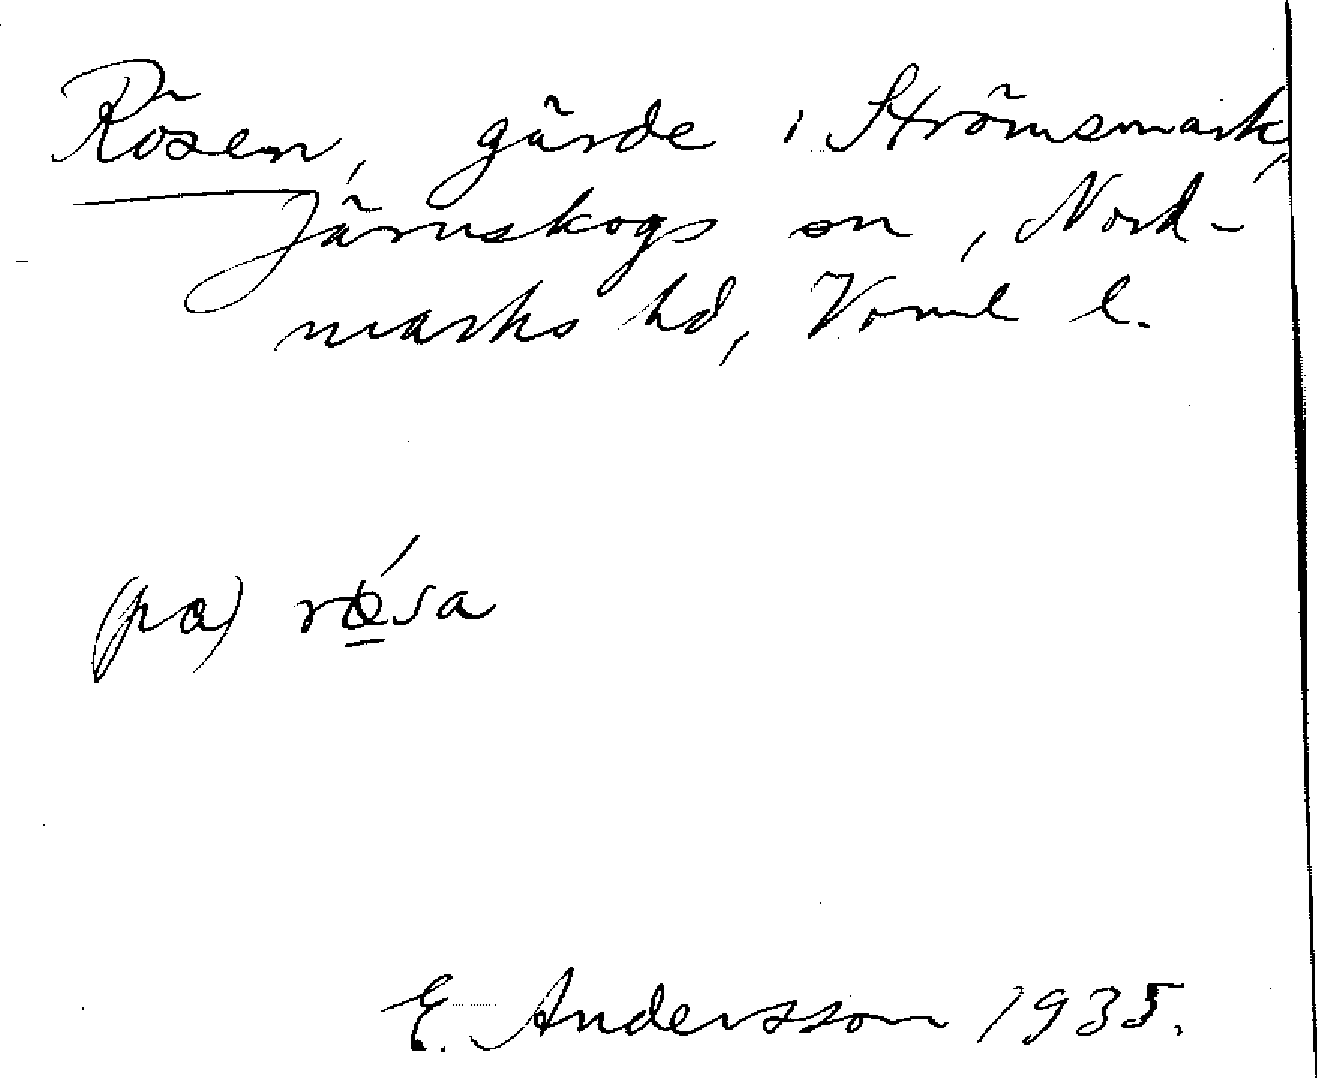 Rösen, gärde i Strömsmark,
Järnskogs sn, Nord-
marks hd, Vrml l.
(pa) rǿsa
E. Andersson 1935.